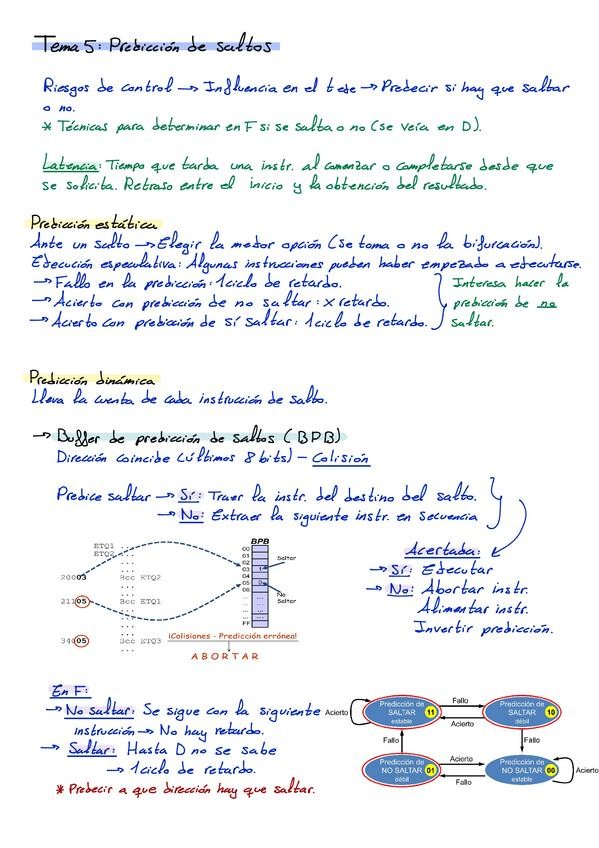 Tema 5: Predicción de saltos
Riesgos de control → Influencia en el t ejec → Predecir si hay que saltar
o no.
* Técnicas para determinar en F si se salta o no (se veía en D).
Latencia: Tiempo que tarda una instr. al comenzar o completarse desde que
se solicita. Retraso entre el inicio y la obtención del resultado.
Predicción estática
Ante un salto → Elegir la mejor opción (se toma o no la bifurcación).
Ejecución especulativa: Algunas instrucciones pueden haber empezado a ejecutarse.
→ Fallo en la predicción: 1 ciclo de retardo.
→ Acierto con predicción de no saltar: x retardo.
→ Acierto con predicción de sí saltar: 1 ciclo de retardo.
Interesa hacer la
predicción de no
saltar.
Predicción dinámica
Lleva la cuenta de cada instrucción de salto.
→ Buffer de predicción de saltos (BPB)
Dirección coincide (últimos 8 bits) - Colisión
Predice saltar → Sí: Traer la instr. del destino del salto.
→ No: Extraer la siguiente instr. en secuencia
Acertada:
→ Sí: Ejecutar
→ No: Abortar instr.
Alimentar instr.
Invertir predicción.
BPB
ETQ1 ...
ETQ2 ...
...
20003 Bcc ETQ2
...
21105 Bcc ETQ1
...
34005 Bcc ETQ3
00
01
02
03 1
04
05 0
06
... ...
... ...
... ...
FF
Saltar
No
Saltar
¡Colisiones - Predicción errónea!
ABORTAR
En F:
→ No saltar: Se sigue con la siguiente
instrucción → No hay retardo.
→ Saltar: Hasta D no se sabe
→ 1 ciclo de retardo.
* Predecir a que dirección hay que saltar.
Acierto
Predicción de
SALTAR 11
estable
Fallo
Acierto
Predicción de
SALTAR 10
débil
Fallo
Fallo
Predicción de
NO SALTAR 01
débil
Acierto
Fallo
Predicción de
NO SALTAR 00
estable
Acierto